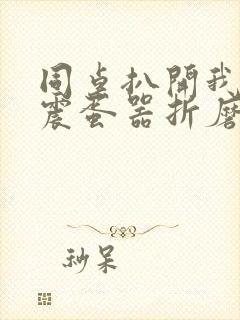 同桌扒開我
震蛋器折磨
秒呆